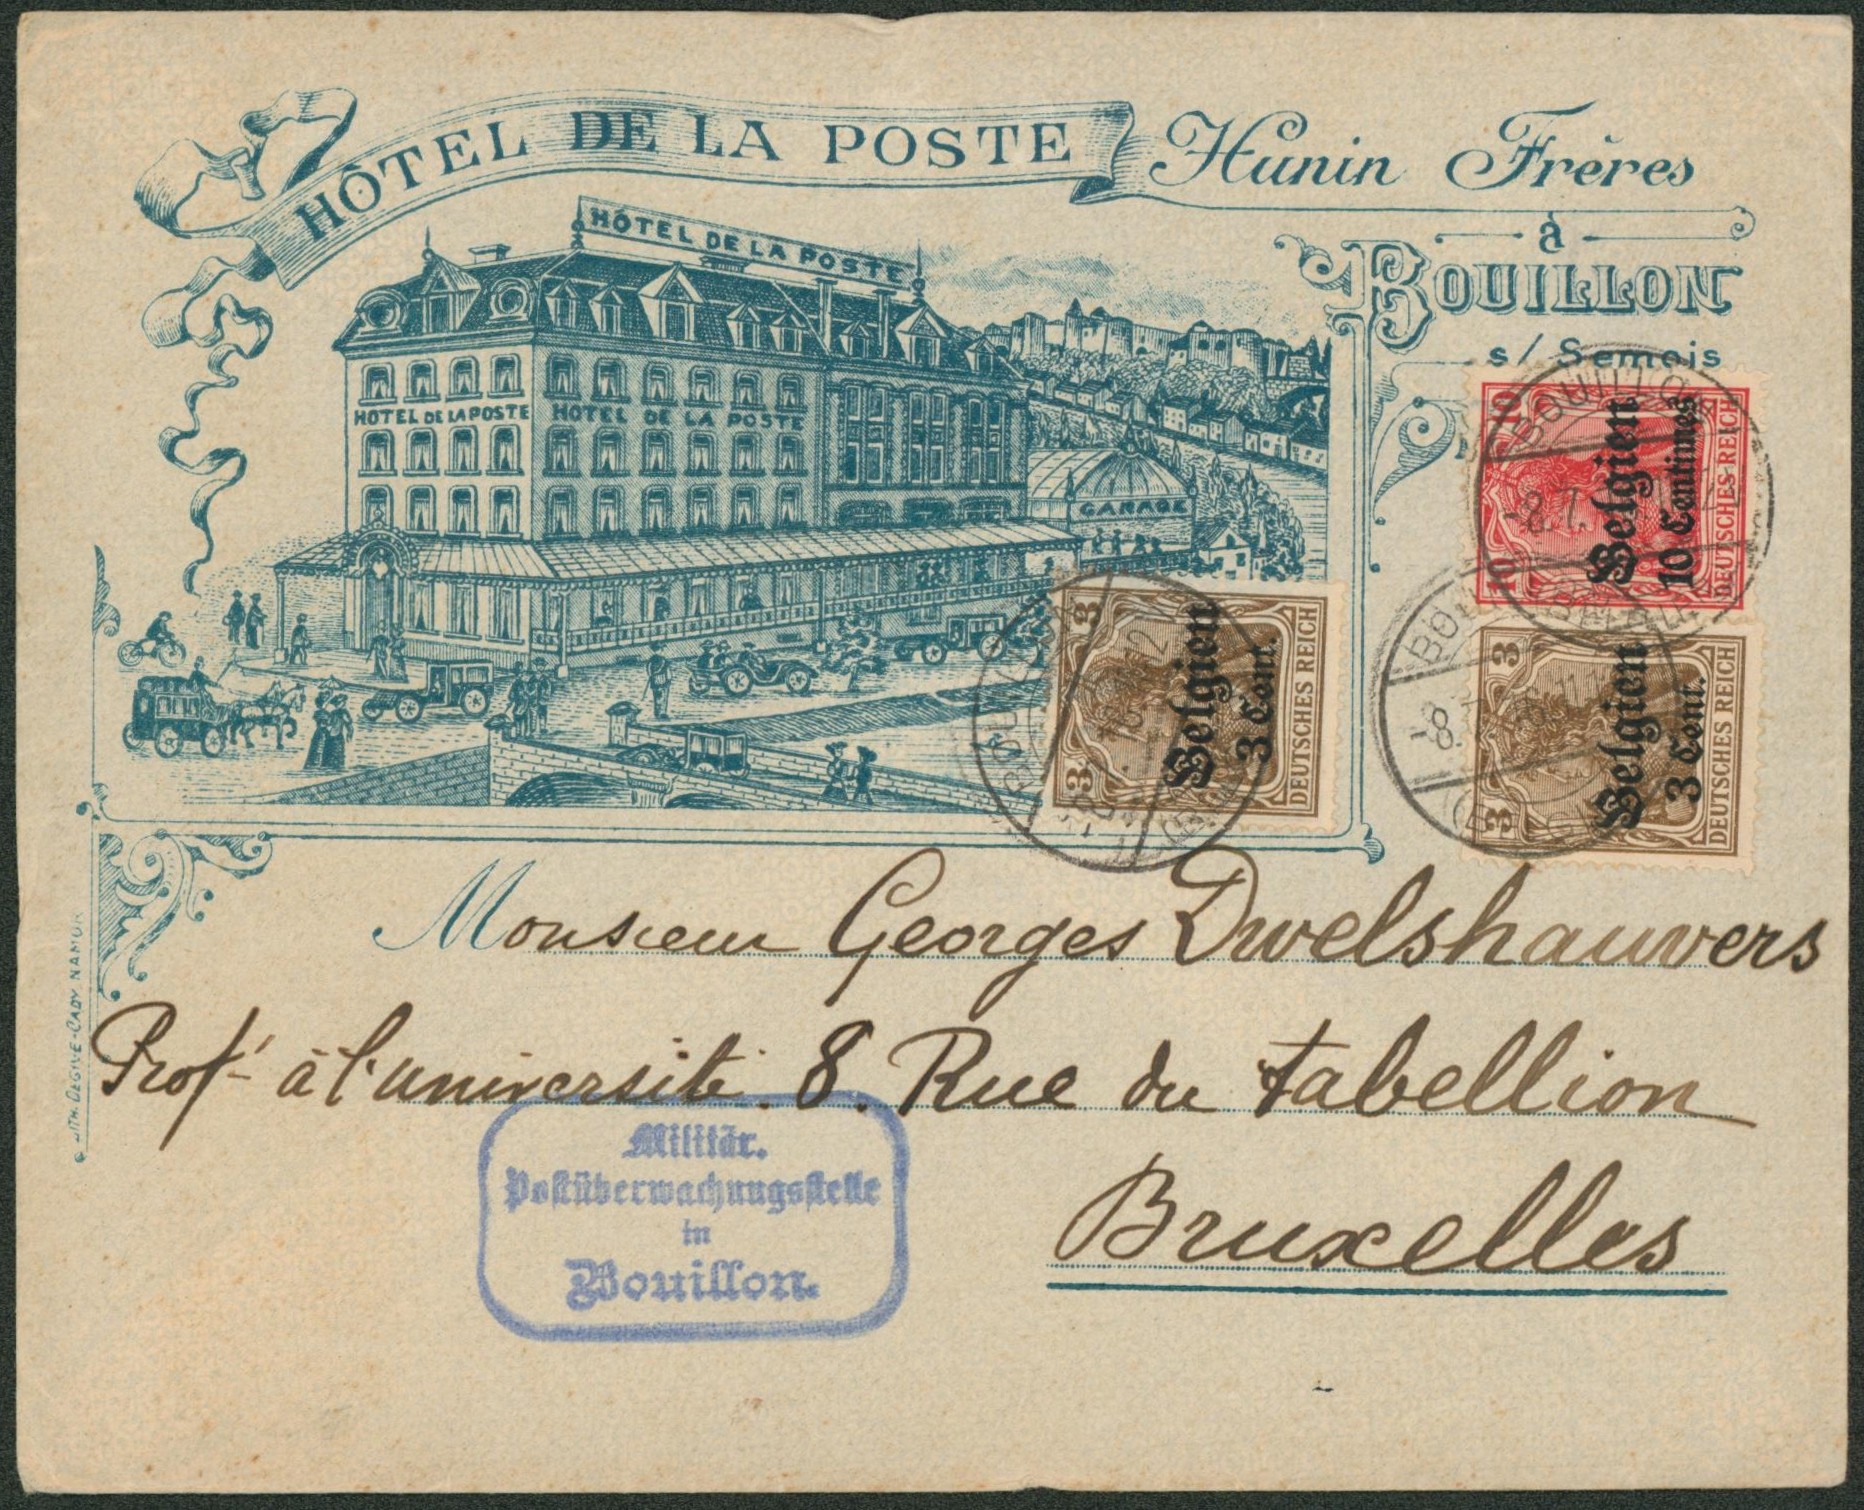 HÔTEL DE LA POSTE
Hunin Frères
à
BOUILLON
s/ Semois
HÔTEL DE LA POSTE
HOTEL DE LA POSTE
HOTEL DE LA POSTE
GARAGE
10
10
Belgien
10 Centimes
DEUTSCHES REICH
3
3
Belgien
3 Cent.
DEUTSCHES REICH
3
3
Belgien
3 Cent.
DEUTSCHES REICH
BOUILLON
Monsieur Georges Dwelshauvers
Prof. à l'université. 8. Rue du Tabellion
Bruxelles
Militär.
Postüberwachungsstelle
in
Bouillon.
LITH. DEGIVE-CADY, NAMUR